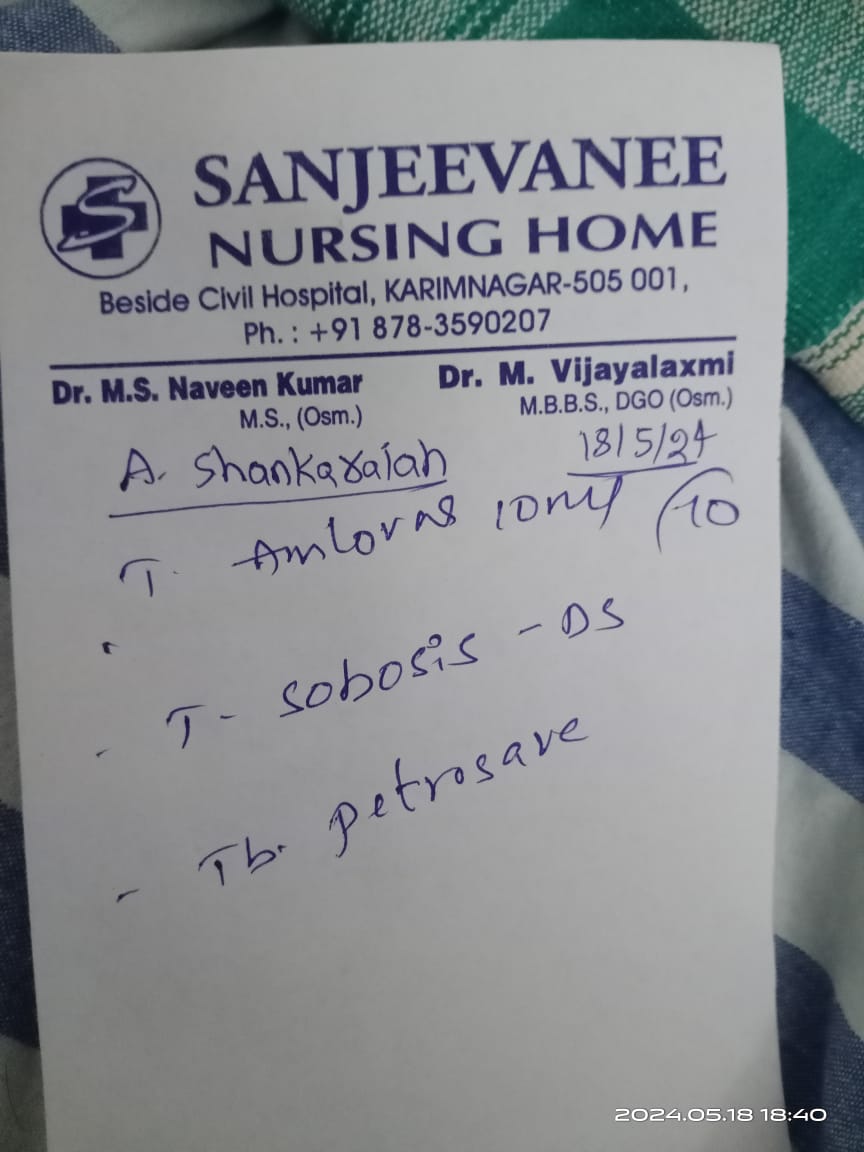 SANJEEVANEE
NURSING HOME
Beside Civil Hospital, KARIMNAGAR-505 001,
Ph. : +91 878-3590207
Dr. M.S. Naveen Kumar Dr. M. Vijayalaxmi
M.S., (Osm.) M.B.B.S., DGO (Osm.)
A. Shankaraiah 18/5/24
T. Amlovas 10mg 10
- T- sobosis - DS
- Tb. petrosave
2024.05.18 18:40